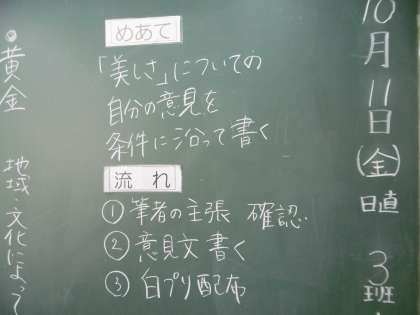 10月11日(金)日直 3班
めあて
「美しさ」についての
自分の意見を
条件に沿って書く
流れ
①筆者の主張 確認
②意見文書く
③白プリ配布
黄金
地域・文化によって